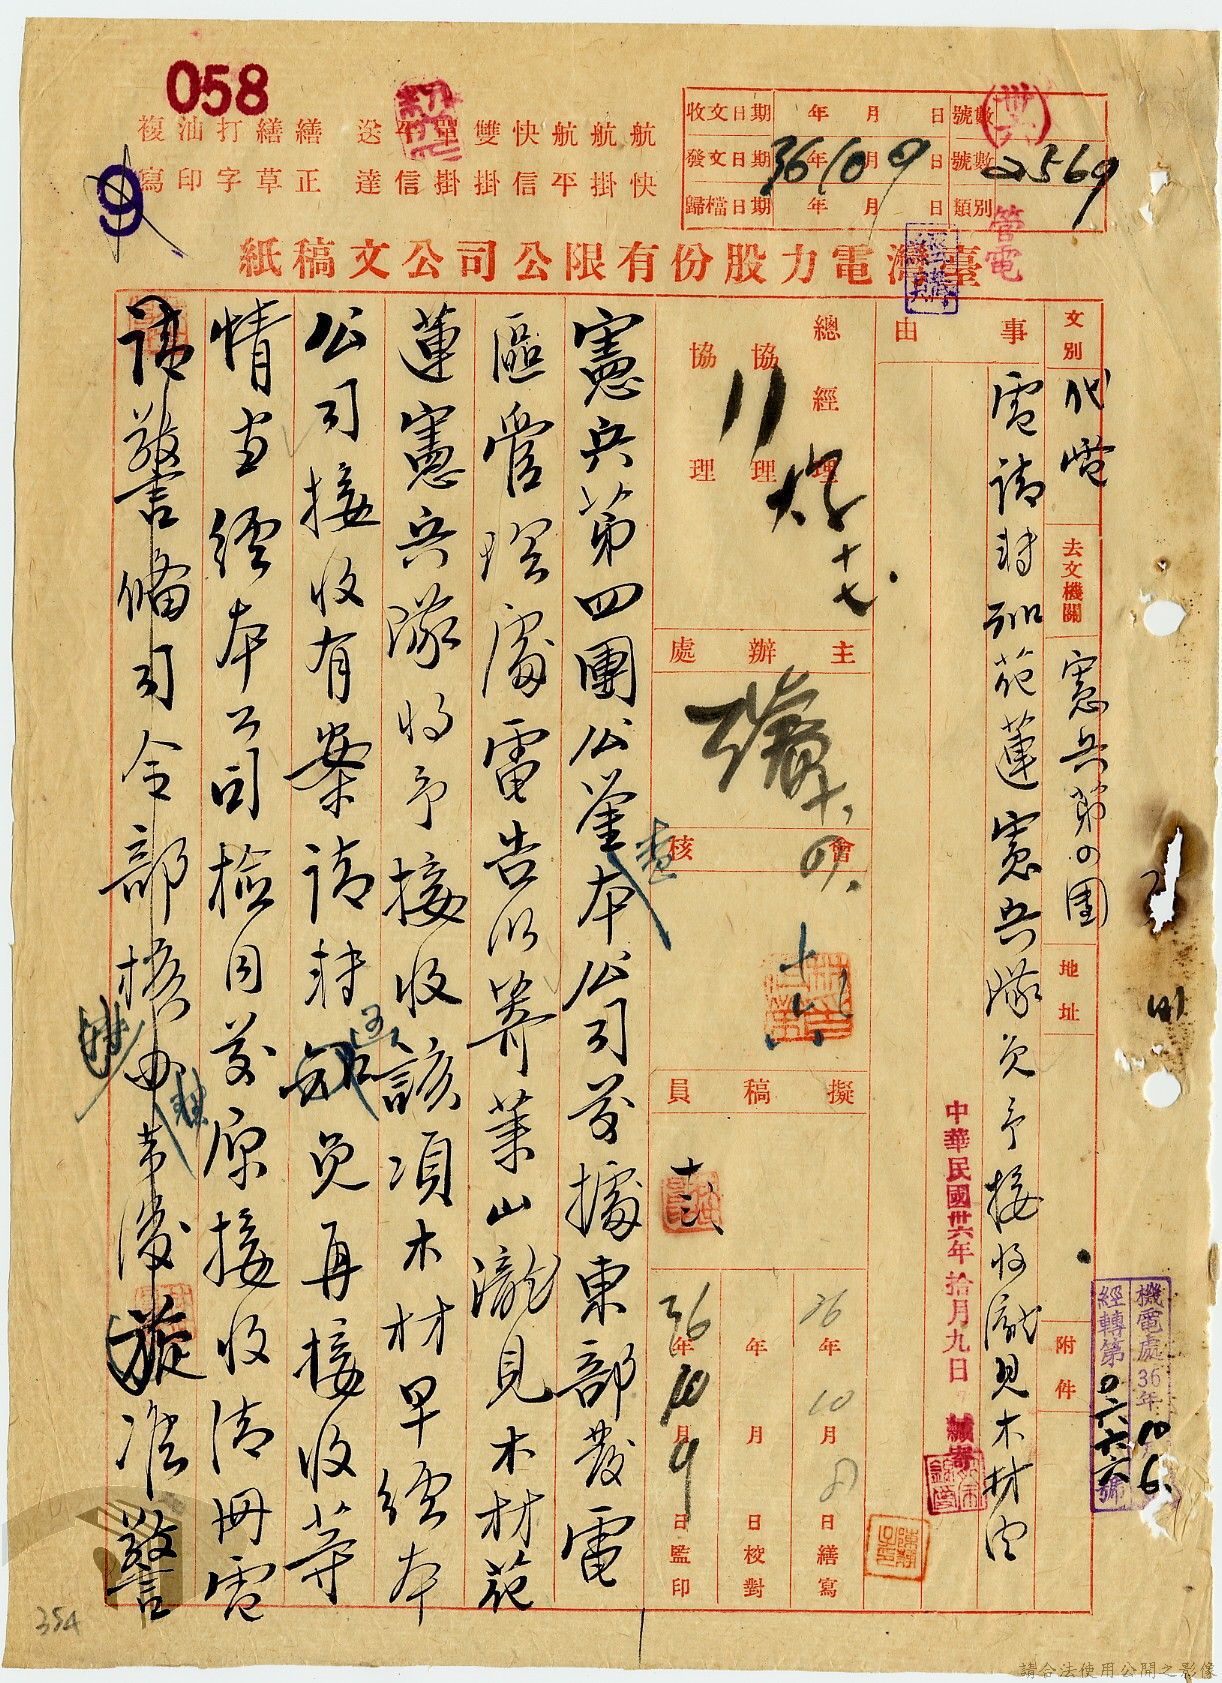 058
9
航航航快雙單平送
快掛平信掛掛信達
繕繕打油複
正草字印寫
收文日期 年 月 日 號數
發文日期 36年10月9日 號數 2569
歸檔日期 年 月 日 類別
管電
臺灣電力股份有限公司公文稿紙
文別 代電
去文機關 憲兵第四團
地址
附件
事由
電請轉飭花蓮憲兵隊免予接收瀧見木材由
中華民國卅六年拾月九日 緘寄
機電處36年10 6
經轉第0六六六號
總經理
協理
協理
主辦處
會核
擬稿員
36年10月8日繕寫
年 月 日校對
36年10月9日監印
憲兵第四團公鑒本公司茲據東部發電
區管理處電告以寄萊山瀧見木材花
蓮憲兵隊將予接收該項木材早經本
公司接收有案請轉知免再接收等
情查經本公司檢同茲原接收清冊電
請警備司令部核辦去後旋准警
354
請合法使用公開之影像